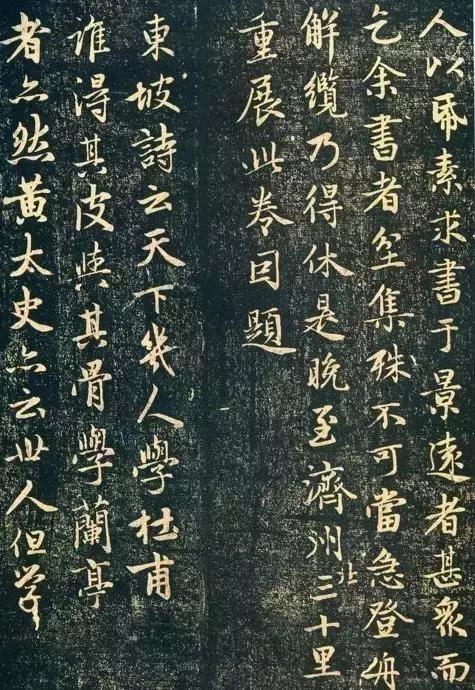 人以帋素求書于景遠者甚衆而
乞余書者坌集殊不可當急登舟
解纜乃得休是晚至濟州北三十里
重展此卷囙題
東坡詩云天下幾人學杜甫
誰得其皮與其骨學蘭亭
者亦然黃太史亦云世人但學